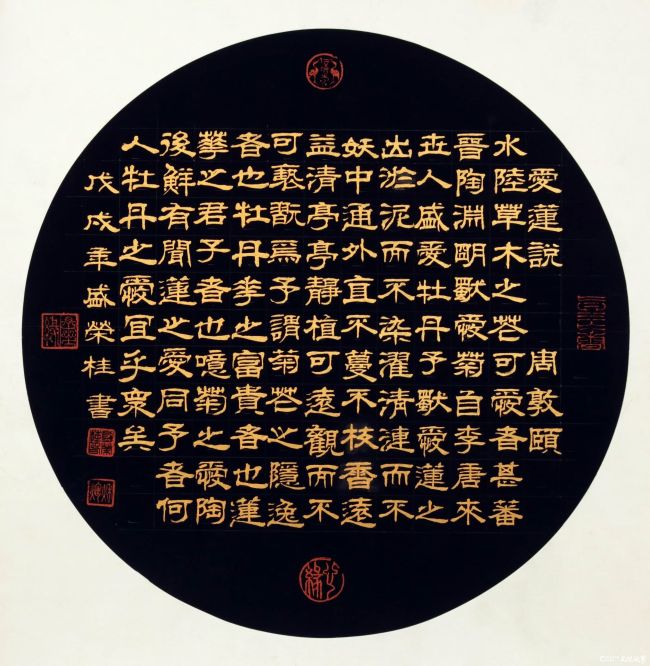 愛蓮說 周敦頤
水陸草木之花可愛者甚蕃
晉陶淵明獨愛菊自李唐來
世人盛愛牡丹予獨愛蓮之
出淤泥而不染濯清漣而不
妖中通外直不蔓不枝香遠
益清亭亭靜植可遠觀而不
可褻翫焉予謂菊花之隱逸
者也牡丹華之富貴者也蓮
華之君子者也噫菊之愛陶
後鮮有聞蓮之愛同予者何
人牡丹之愛宜乎眾矣
戊戌年盛榮桂書